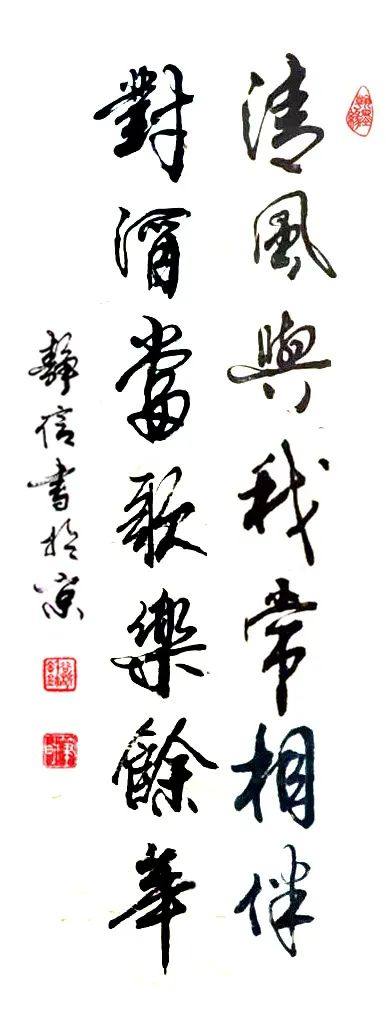 清風與我常相伴
對酒當歌樂餘華
靜信書於凉